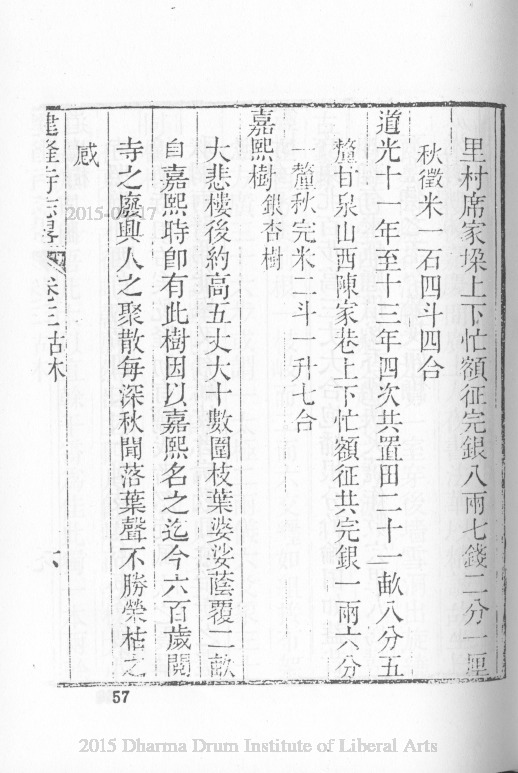 里村席家垛上下忙額征完銀八兩七錢二分一厘
秋徵米一石四斗四合
道光十一年至十三年四次共置田二十一畝八分五
釐甘泉山西陳家巷上下忙額征共完銀一兩六分
一釐秋完米二斗一升七合
嘉熙樹銀杏樹
大悲樓後約高五丈大十數圍枝葉婆娑蔭覆二畝
自嘉熙時卽有此樹因以嘉熙名之迄今六百歲閱
寺之廢興人之聚散每深秋聞落葉聲不勝榮枯之
感
建隆寺志畧 卷三古木 六
2015-07-17
57
2015 Dharma Drum Institute of Liberal Arts